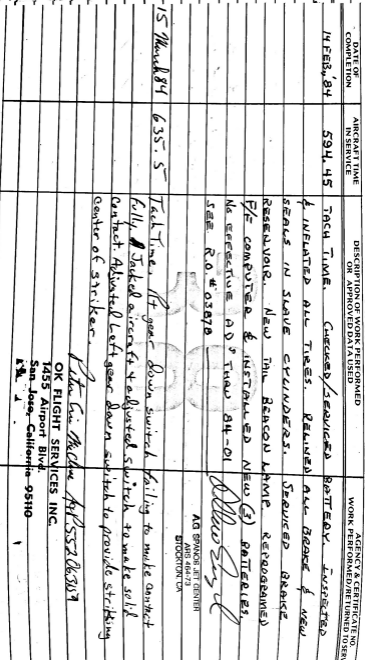 DATE OF COMPLETION
AIRCRAFT TIME IN SERVICE
DESCRIPTION OF WORK PERFORMED OR APPROVED DATA USED
AGENCY & CERTIFICATE NO. WORK PERFORMED/RETURNED TO SERV
14 FEB, '84 594.45 TACH TIME. CHECKED/SERVICED BATTERY. INSPECTED
& INFLATED ALL TIRES. RELINED ALL BRAKE & NEW
SEALS IN SLAVE CYLINDERS. SERVICED BRAKE
RESERVOIR. NEW TAIL BEACON LAMP. REPROGRAMED
F/F COMPUTER & INSTALLED NEW (3) BATTERIES.
NO EFFECTIVE AD'S THAN 84-01
SEE R.O. # 03878
AG SPANOS JET CENTER
ARS 464-73
STOCKTON, CA
15 March 84 635.5 Tach Time. Rt gear down switch failing to make contact
fully. Jacked aircraft & adjusted switch to make solid
contact. Adjusted Left gear down switch to provide striking
center of striker.
OK FLIGHT SERVICES INC.
1455 Airport Blvd.
San Jose, California 95110